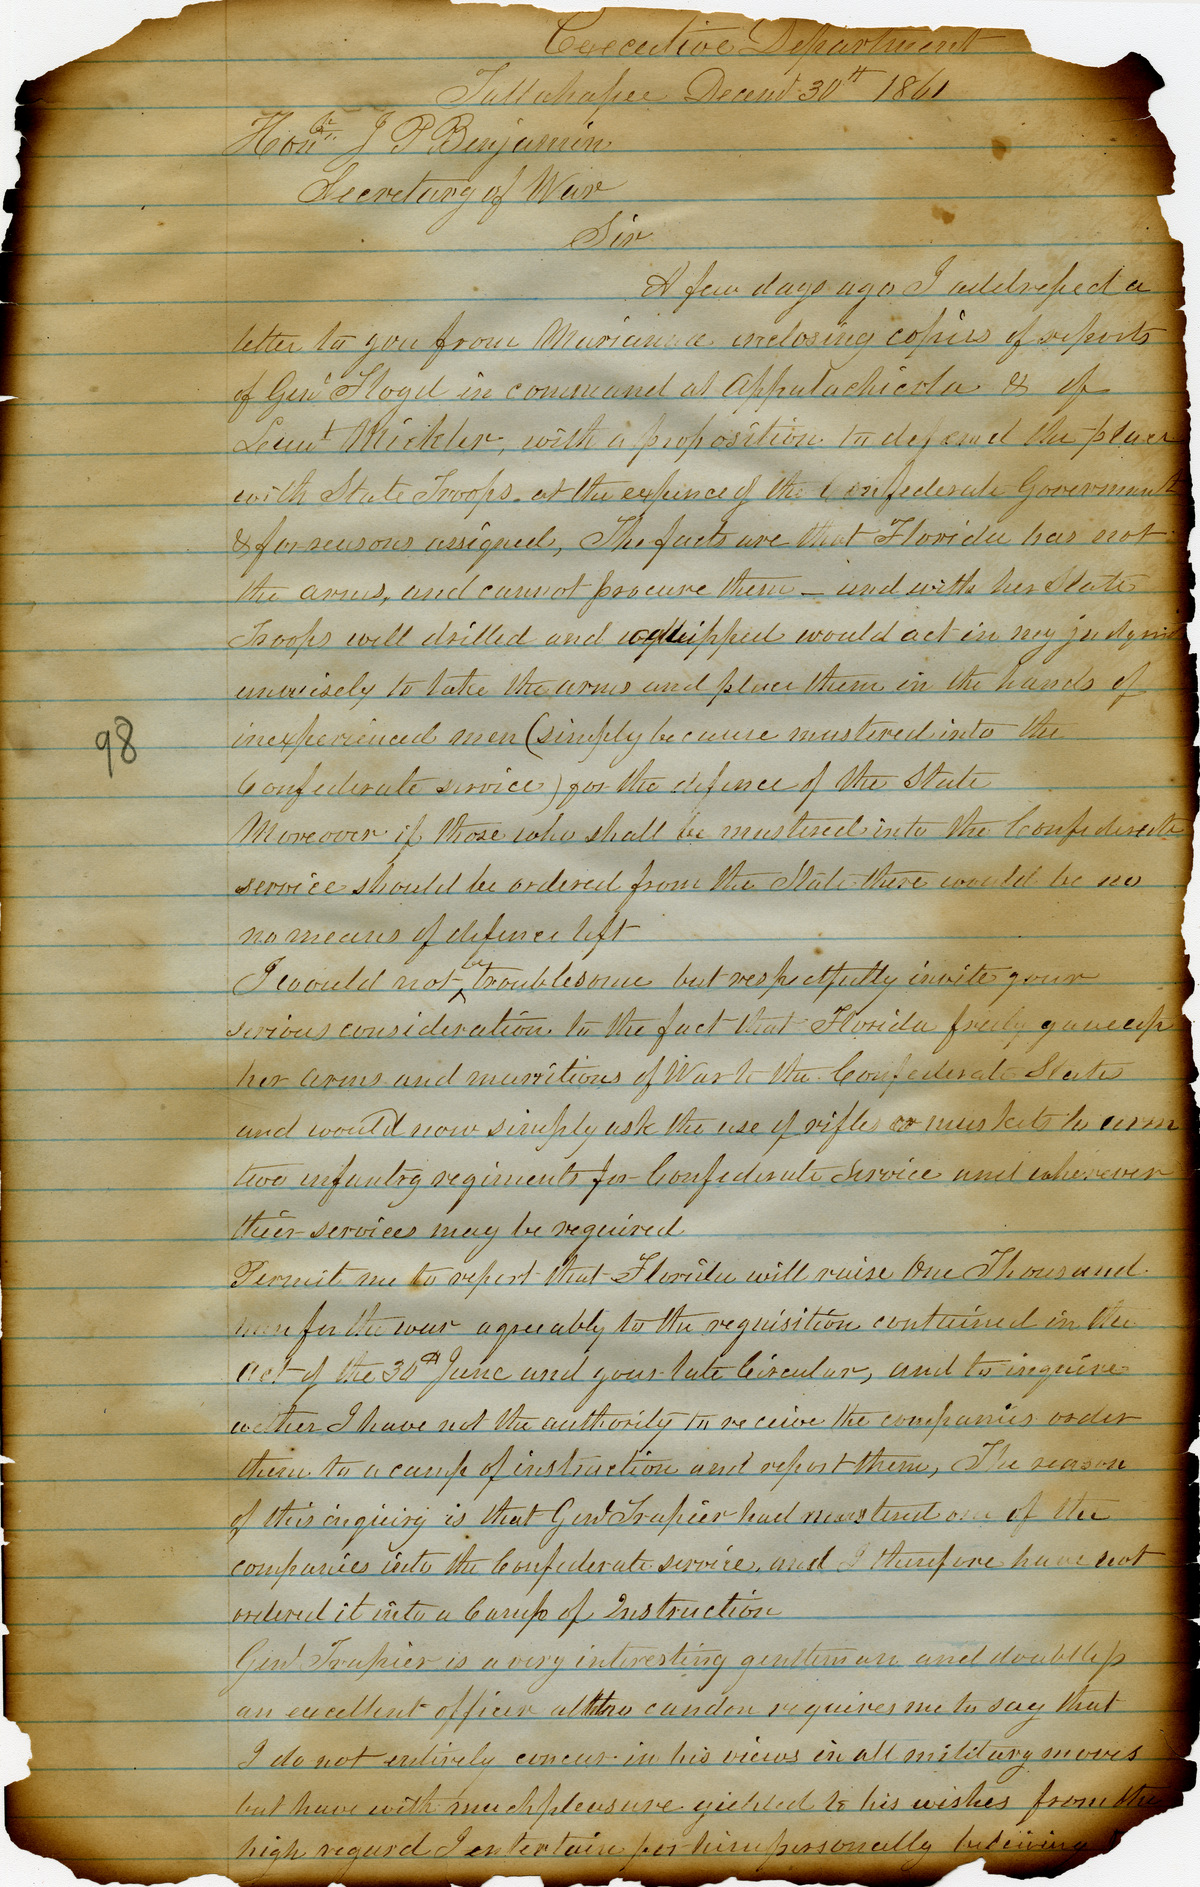 Executive Department
Tallahassee Decemb 30th 1861
Honble J P Benjamin
Secretary of War
Sir
A few days ago I addressed a
letter to you from Marianna inclosing copies of reports
of Genl Floyd in command at Appalachicola & of
Lieut Mickler, with a proposition to defend the place
with State Troops at the expence of the Confederate Government
& for reasons assigned, The facts are that Florida has not
the arms, and cannot procure them – and with her State
Troops well drilled and equipped would act in my judgm
unwisely to take the arms and place them in the hands of
inexperienced men (simply because mustered into the
Confederate service) for the defence of the State
Moreover if those who shall be mustered into the Confederate
service should be ordered from the State there would be no
no means of defence left
I would not be troublesome but respectfully invite your
serious consideration to the fact that Florida freely gave up
her arms and munitions of War to the Confederate State
and would now simply ask the use of rifles or muskets to arm
two infantry regiments for Confederate Service and wherever
their services may be required
Permit me to report that Florida will raise One Thousand
men for the war agreeably to the requisition contained in the
Act of the 30th June and your late Circular, and to inquire
wether I have not the authority to receive the companies order
them to a camp of instruction and report them, The reason
of this inquiry is that Genl Trapier had mustered one of the
companies into the Confederate service, and I therefore have not
ordered it into a Camp of Instruction
Genl Trapier is a very interesting gentleman and doubtless
an excellent officer altho candor requires me to say that
I do not entirely concur in his views in all military moves
but have with much pleasure yielded to his wishes from the
high regard I entertain for him personally believing
98